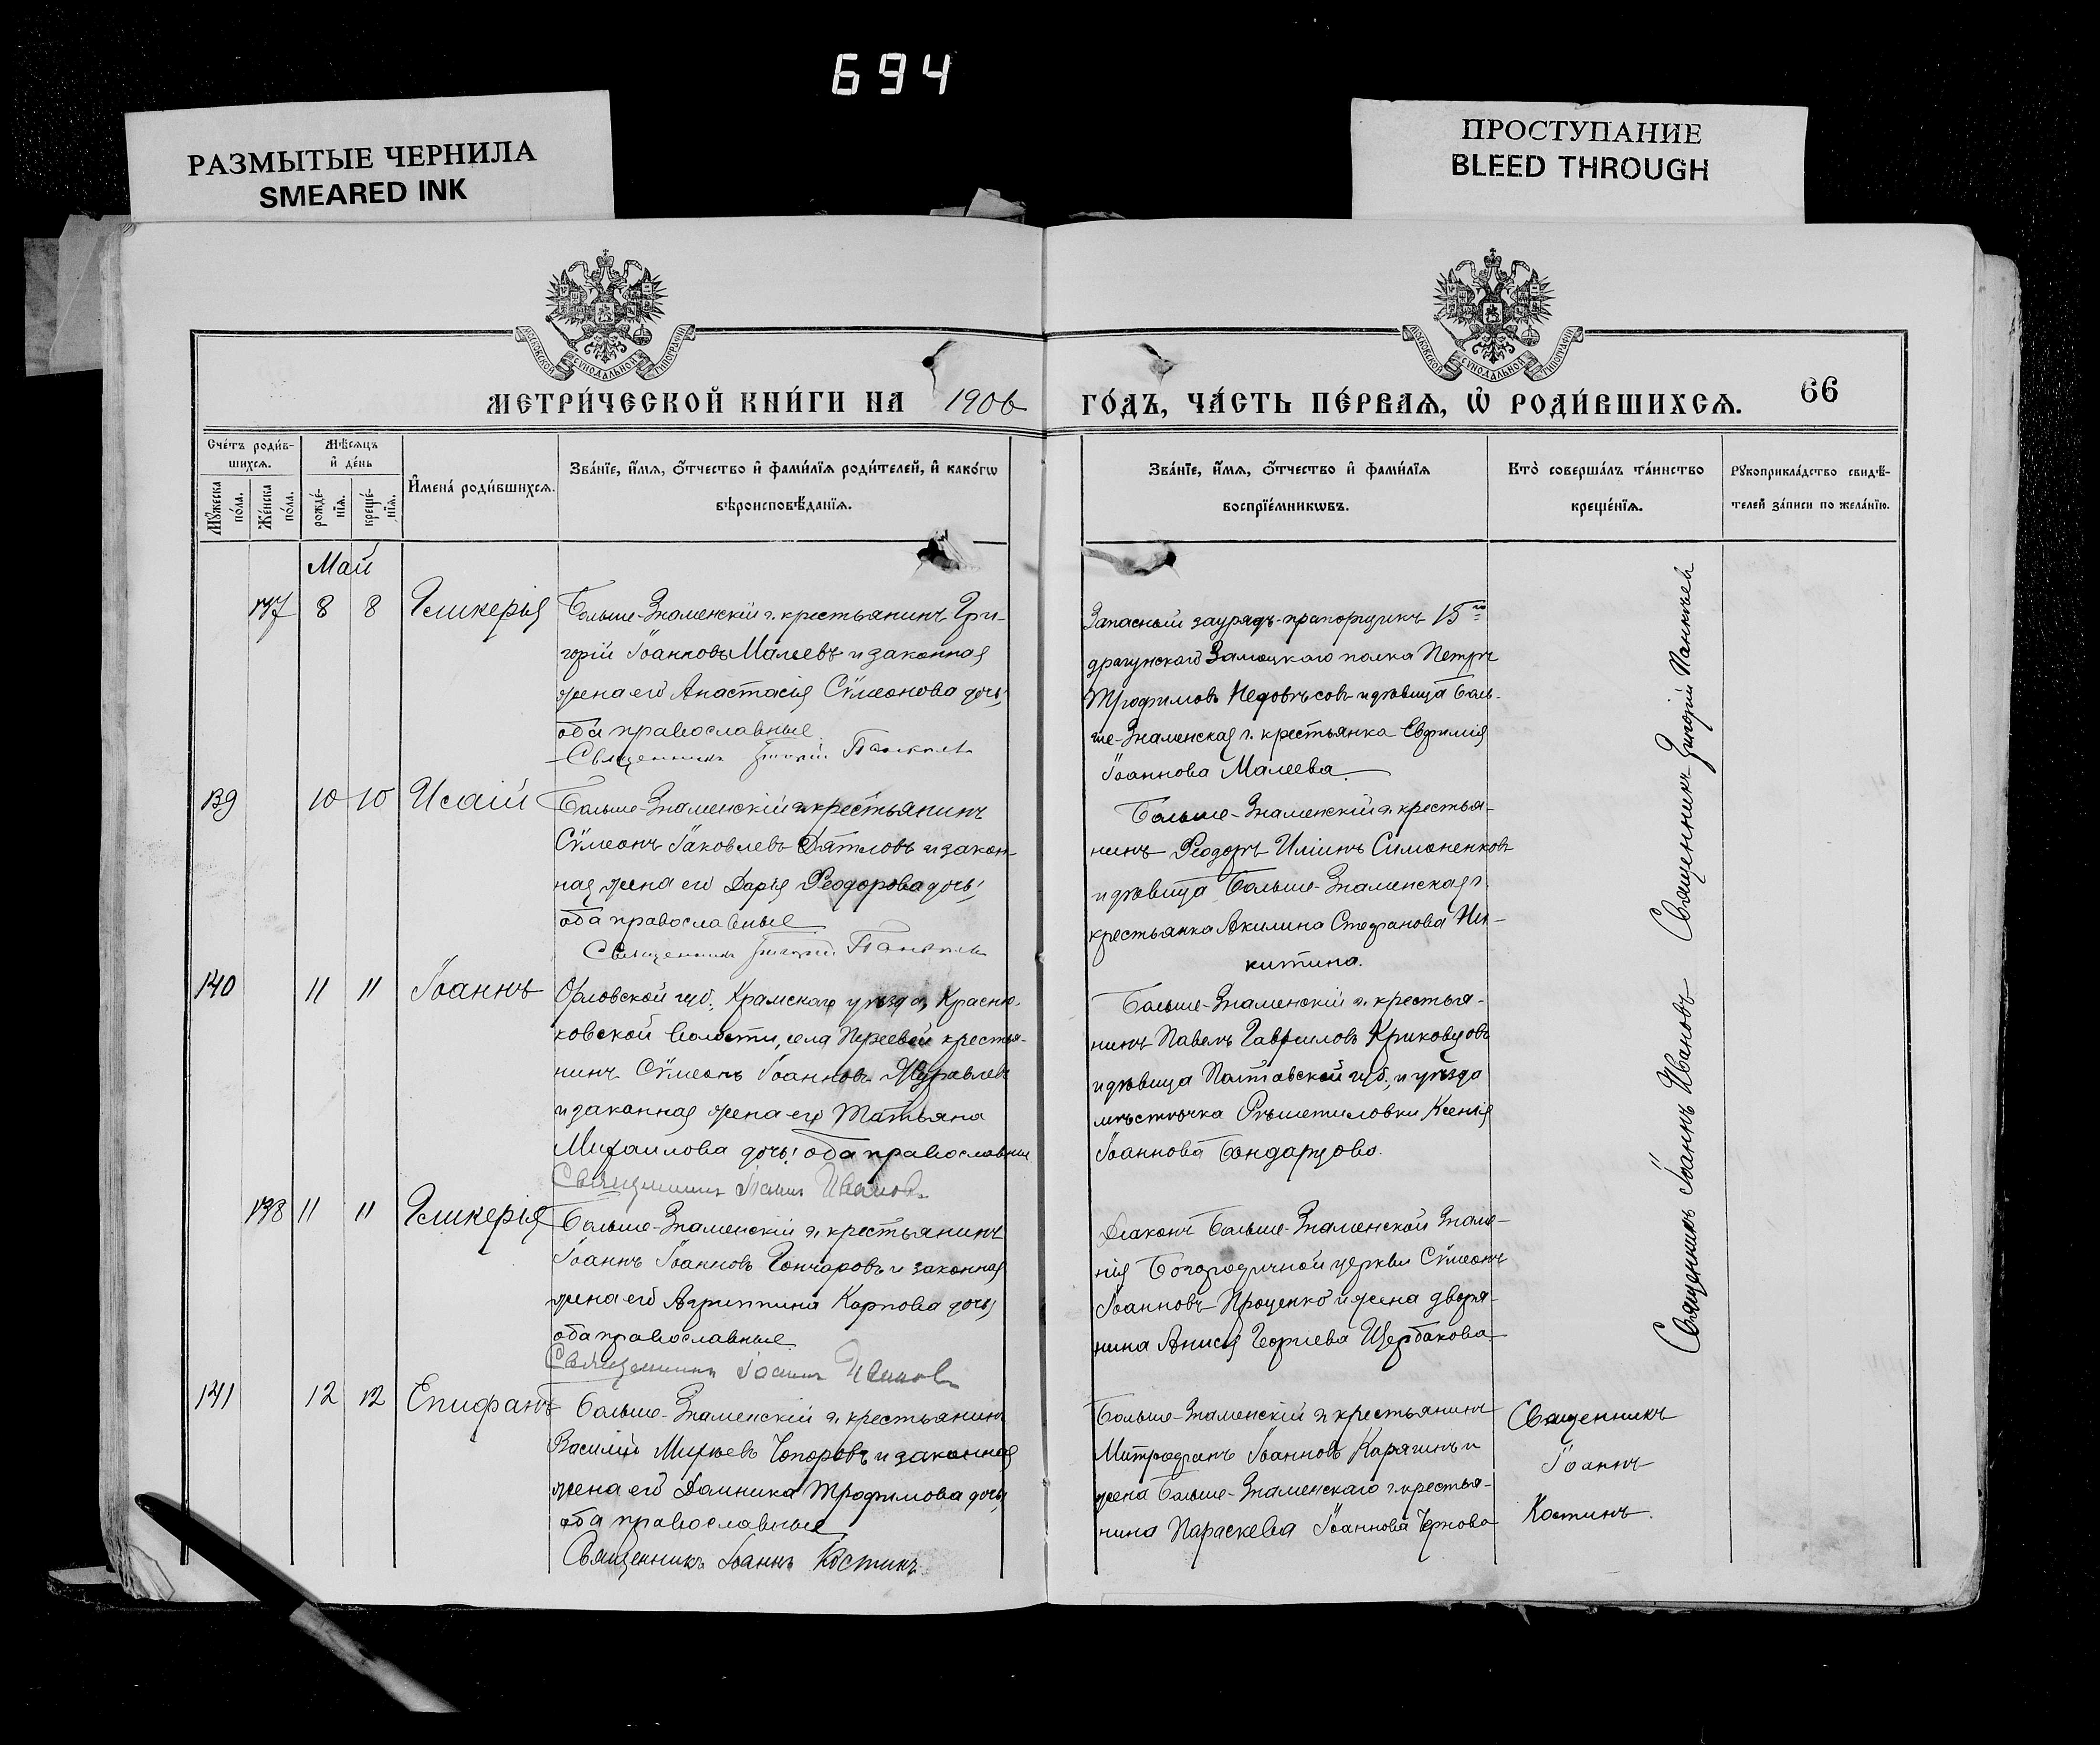 694
РАЗМЫТЫЕ ЧЕРНИЛА
SMEARED INK
ПРОСТУПАНИЕ
BLEED THROUGH
МОСКОВСКОЙ СѴНОДАЛЬНОЙ ТИПОГРАФІИ
МОСКОВСКОЙ СѴНОДАЛЬНОЙ ТИПОГРАФІИ
МЕТРИ́ЧЕСКОЙ КНИ́ГИ НА 1906
ГО́ДЪ, ЧА́СТЬ ПЕ́РВАѦ, Ѡ҆ РОДИ́ВШИХСѦ.
66
Счетъ роди́в-
шихсѧ.
Мꙋжеска
по́ла.
Же́нска
по́ла.
Мѣсѧцъ
и҆ де́нь
рожде́-
нїѧ.
креще́-
нїѧ.
И҆мена̀ роди́вшихсѧ.
Зва́нїе, и҆́мѧ, ѻ҆́тчество и҆ фами́лїѧ роди́телей, и҆ како́гѡ
вѣроисповѣ́данїѧ.
Зва́нїе, и҆́мѧ, ѻ҆́тчество и҆ фами́лїѧ
воспрїе́мникѡвъ.
Кто̀ соверша́лъ та́инство
креще́нїѧ.
Рꙋкоприкла́дство свидѣ́-
телей за́писи по жела́нїю.
Май
137 8 8 Гликерія
Больше-Знаменскій г. крестьянинъ Гри-
горій Іоанновъ Малеевъ и законная
жена его Анастасія Сѵмеонова дочь,
оба православные
Священникъ Григорій Пантѣевъ
Запасный заурядъ-прапорщикъ 15го
драгунского полка Петръ
Трофимовъ и дѣвица Боль-
ше-Знаменская г. крестьянка Евфимія
Іоаннова Малеева.
139 10 10 Исаій
Больше-Знаменскій г. крестьянинъ
Сѵмеонъ Іаковлевъ Дятловъ и закон-
ная жена его Дарія Ѳеодорова дочь,
оба православные
Священникъ Григорій Пантѣевъ
Больше-Знаменскій г. крестья-
нинъ Ѳеодоръ Иліинъ Симоненковъ
и дѣвица Больше-Знаменская г.
крестьянка Акилина Стефанова Ни-
китина.
Священникъ Григорій Пантѣевъ
140 11 11 Іоаннъ
Орловской губ., Крамскаго уѣзда,
ковской волости, села крестья-
нинъ Сѵмеонъ Іоанновъ Журавлевъ
и законная жена его Татьяна
Михаилова дочь, оба православные
Священникъ Іоаннъ Ивановъ
Больше-Знаменскій г. крестья-
нинъ Павелъ Гавриловъ Криковцовъ
и дѣвица Полтавской губ. и уѣзда
мѣстечка Рѣшетиловки Ксенія
Іоаннова Бондарцова.
138 11 11 Гликерія
Больше-Знаменскій г. крестьянинъ
Іоаннъ Іоанновъ Гончаровъ и законная
жена его Агриппина Карпова дочь,
оба православные
Священникъ Іоаннъ Ивановъ
Діаконъ Больше-Знаменской Знаме-
нія Богородичной церкви Сѵмеонъ
Іоанновъ Проценко и жена дворя-
нина Анисія Георгіева Щербакова
Священникъ Іоаннъ Ивановъ
141 12 12 Епифанъ
Больше-Знаменскій г. крестьянинъ
Василій Топоровъ и законная
жена его Домника Трофимова дочь,
оба православные
Священникъ Іоаннъ Костинъ
Больше-Знаменскій г. крестьянинъ
Митрофанъ Іоанновъ Карягинъ и
жена Больше-Знаменскаго г. крестья-
нина Параскева Іоаннова Чернова
Священникъ
Іоаннъ
Костинъ.